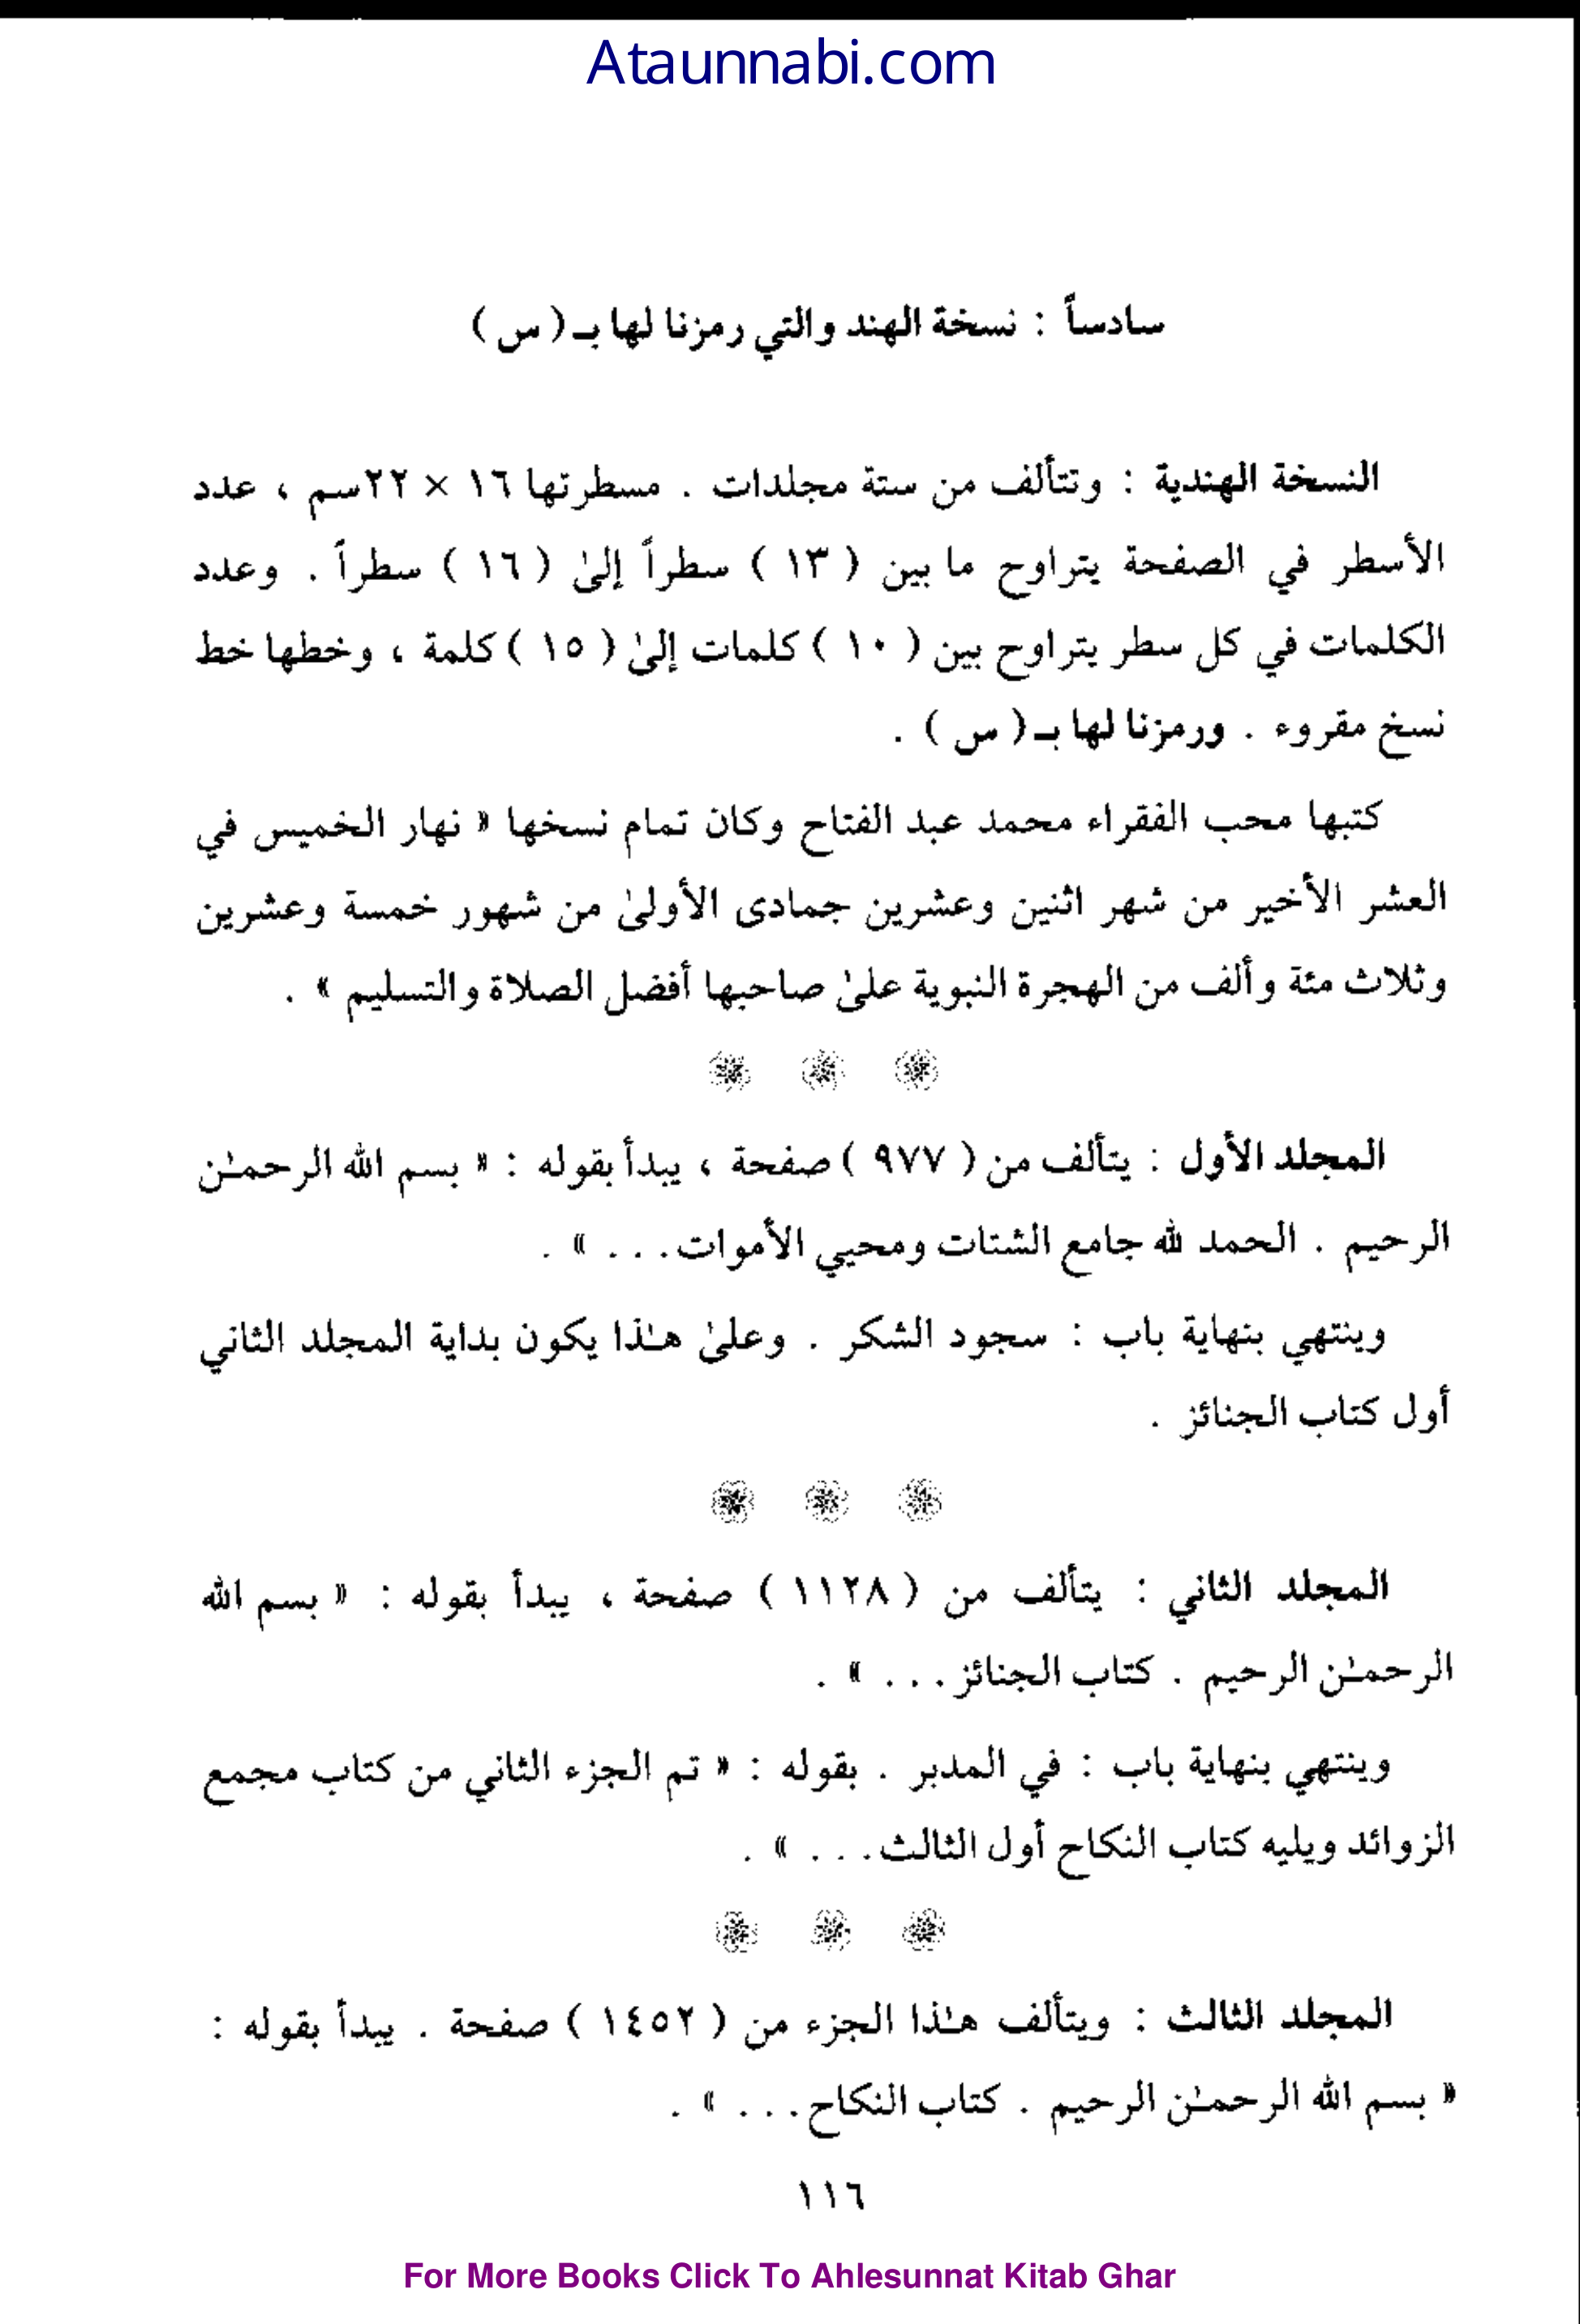 Ataunnabi.com
سادساً : نسخة الهند والتي رمزنا لها بـ ( س )
النسخة الهندية : وتتألف من ستة مجلدات . مسطرتها ١٦ × ٢٢سم ، عدد
الأسطر في الصفحة يتراوح ما بين ( ١٣ ) سطراً إلىٰ ( ١٦ ) سطراً . وعدد
الكلمات في كل سطر يتراوح بين ( ١٠ ) كلمات إلىٰ ( ١٥ ) كلمة ، وخطها خط
نسخ مقروء . ورمزنا لها بـ ( س ) .
كتبها محب الفقراء محمد عبد الفتاح وكان تمام نسخها « نهار الخميس في
العشر الأخير من شهر اثنين وعشرين جمادى الأولىٰ من شهور خمسة وعشرين
وثلاث مئة وألف من الهجرة النبوية علىٰ صاحبها أفضل الصلاة والتسليم » .
المجلد الأول : يتألف من ( ٩٧٧ ) صفحة ، يبدأ بقوله : « بسم الله الرحمـٰن
الرحيم . الحمد لله جامع الشتات ومحيي الأموات. . . » .
وينتهي بنهاية باب : سجود الشكر . وعلىٰ هـٰذا يكون بداية المجلد الثاني
أول كتاب الجنائز .
المجلد الثاني : يتألف من ( ١١٢٨ ) صفحة ، يبدأ بقوله : « بسم الله
الرحمـٰن الرحيم . كتاب الجنائز. . . » .
وينتهي بنهاية باب : في المدبر . بقوله : « تم الجزء الثاني من كتاب مجمع
الزوائد ويليه كتاب النكاح أول الثالث. . . » .
المجلد الثالث : ويتألف هـٰذا الجزء من ( ١٤٥٢ ) صفحة . يبدأ بقوله :
« بسم الله الرحمـٰن الرحيم . كتاب النكاح. . . » .
١١٦
For More Books Click To Ahlesunnat Kitab Ghar